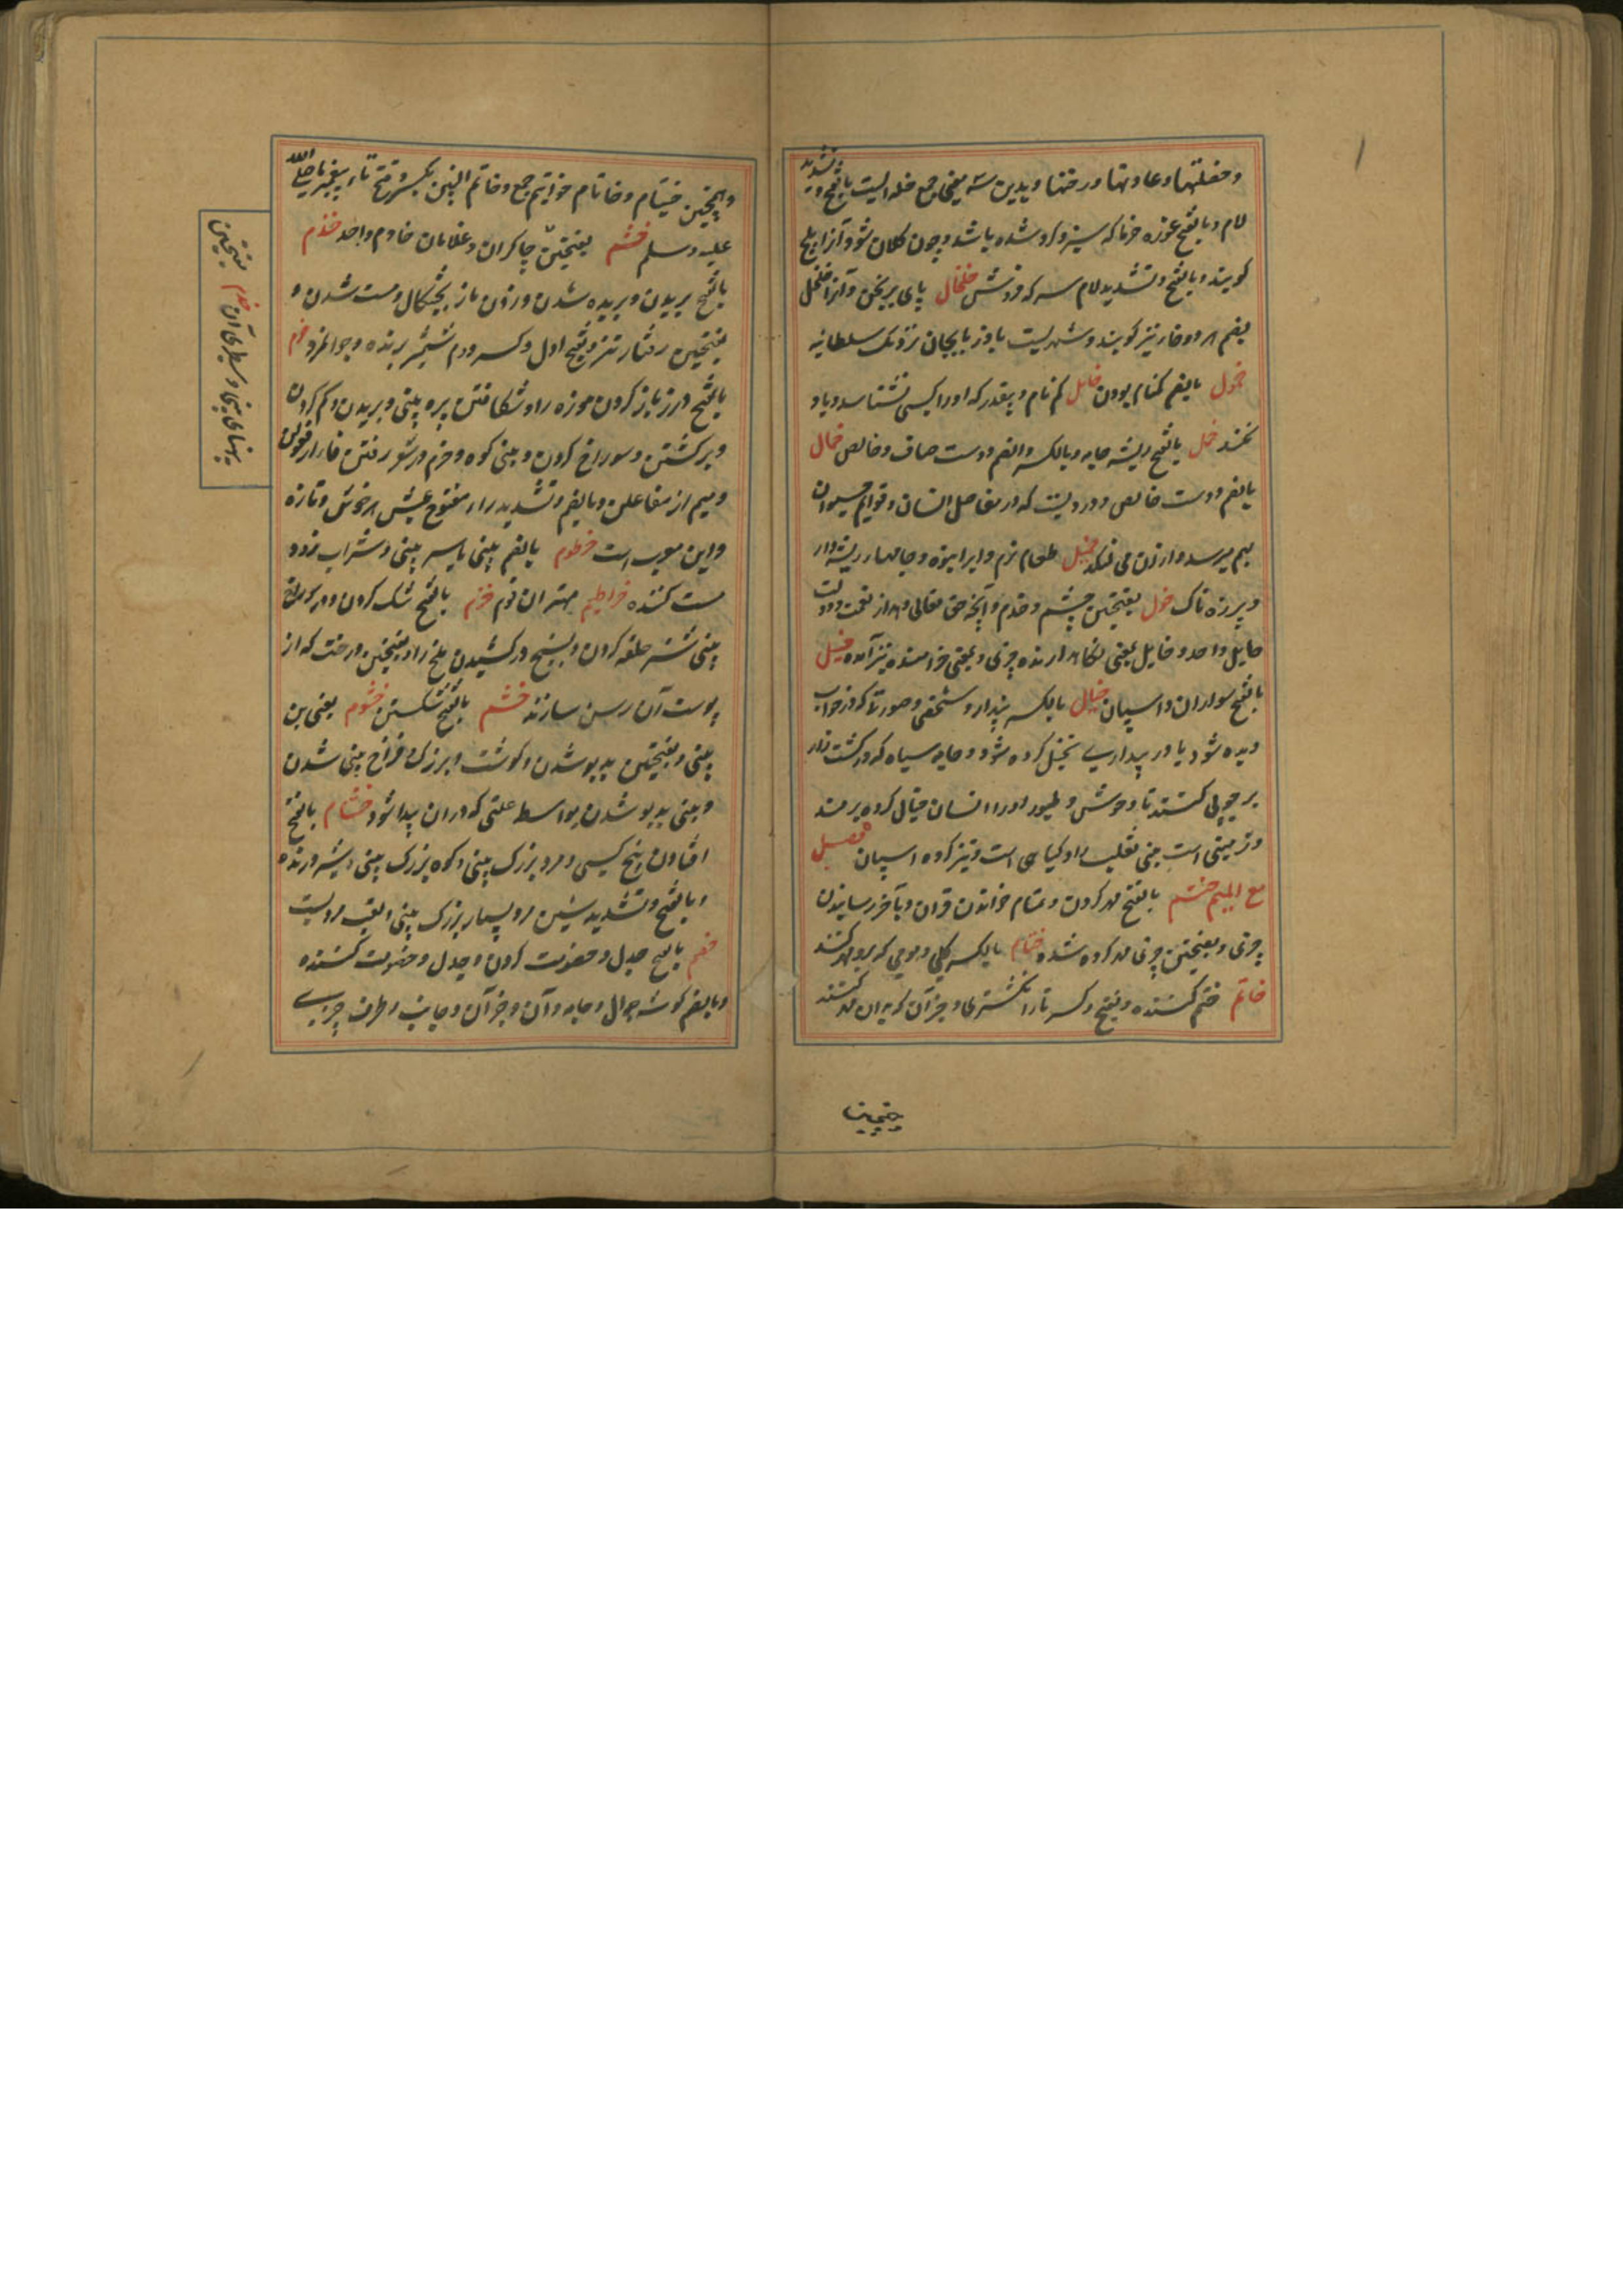 و خصلتها و عادتها و رخنها و بدین سه معنی جمع خله است بالفتح و تشدید
لام و بالفتح غوزه خرما که سبز و کرد شده باشد و چون کلان شود آنرا بلح
کویند و بالفتح و تشدید لام سرکه فروش خلخال پای برنجن و آنرا خلخل
بضم هر دو خا نیز کویند و شهریست باذربایجان نزدیک سلطانیه
خمول بالضم کمنام بودن خامل کم نام و بیقدر که او را کسی نشناسد و یاد
نکند خمل بالفتح ریشه جامه و بالکسر والضم دوست صاف و خالص خمال
بالضم دوست خالص و دردیست که در مفاصل انسان و قوایم حیوان
بهم میرسد و از آن می لنکد خمیل طعام نرم و ابر انبوه و جامهاء ریشه دار
و پرزه ناک خول بفتحتین چشم و خدم و آنچه حق تعالی دهد از نعمت و دولت
خایل واحد و خایل بمعنی نکاهدارنده چیزی و بمعنی خرامنده نیز آمده خیل
بالفتح سواران و اسپان خیال بالکسر پندار و شخصی و صورتی که در خواب
دیده شود یا در بیداری تخیل کرده شود و جامه سیاه که در کشت زار
بر چوبی کنند تا وحوش و طیور او را انسان خیال کرده برمند
و زمینی است بنی تغلب را و کیاهی است و نیز کروه اسپان فصل
مع المیم ختم بالفتح مهر کردن و تمام خواندن قران و بآخر رسانیدن
چیزی و بفتحتین چیزی مهر کرده شده ختام بالکسر کلی و مومی که برو مهر کنند
خاتم ختم کننده و بفتح و کسر تا انکشتری و جز آن که بدان مهر کنند
وهمچنین
وهمچنین خیتام و خاتام خواتیم جمع و خاتم النبیین بکسر و فتح تاء پیغمبر ما صلی الله
علیه وسلم خشم بفتحتین چاکران و غلامان خادم واحد خذم
بالفتح بریدن و بریده شدن و زدن باز بچنکال و مست شدن و
بفتحتین رفتار تیز و بفتح اول و کسر دوم شمشیر برنده و جوانمرد خرم
بالفتح درز باز کردن موزه را و شکافتن پره بینی و بریدن و کم کردن
و برکشتن و سوراخ کردن و بینی کوه و خرم در شعر رفتن فا از فعولن
و میم از مفاعلن و بالضم و تشدید راء مفتوح عیش خوش و تازه
و این معرب است خرطوم بالضم بینی یا سر بینی و شراب زود
مست کننده خراطیم مهتران قوم خزم بالفتح شک کردن و در سوراخ
بینی شتر حلقه کردن و بسیخ درکشیدن ملخ را و بفتحتین درخت که از
پوست آن رسن سازند خشم بالفتح شکستن خشوم یعنی بن
بینی و بفتحتین بدبو شدن کوشت و بزرک و فراخ بینی شدن
و بینی بدبو شدن بواسطه علتی که در آن پیدا شود خشام بالفتح
افتادن بیخ کسی و مرد بزرک بینی و کوه بزرک بینی و شیر درنده
و بالفتح و تشدید شین مرد بسیار بزرک بینی و لقب مردیست
خصم بالفتح جدل و خصومت کردن و جدل و خصومت کننده
و بالضم کوشه جوال و جامه و آن و جز آن و جانب و طرف چیزی
بفتحتین
خرم
پهنای بینی و سطبری آن